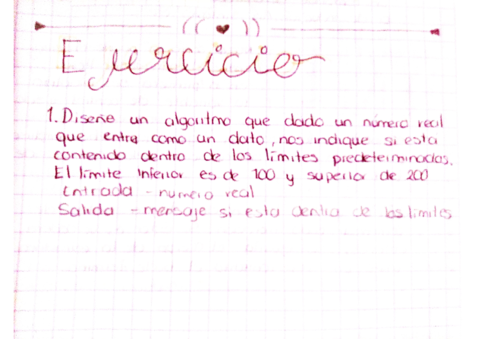 Ejercicio
1. Diseñe un algoritmo que dado un número real
que entra como un dato, nos indique si esta
contenido dentro de los límites predeterminados.
El límite inferior es de 100 y superior de 200
Entrada - numero real
Salida - mensaje si esta dentro de los limites